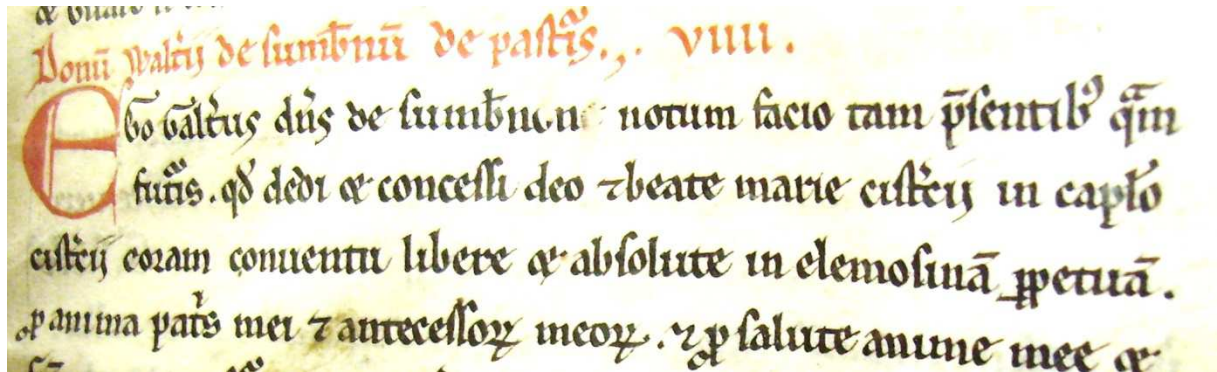 Donū Walt̓ij de sumb̄nū de pasťis. .. viiii.
Ego Galt̓us dn̄s de sumb̄non notum facio tam p̄sentib᷒ qᵃm
fut᷒is. qđ dedi & concessi deo ⁊ beate marie cist̓cij in capl̓o
cist̓cij coram conuentu libere & absolute in elemosinā ꝑpetuā.
ꝓ anima pat̓s mei ⁊ antecessoꝝ meoꝝ. ⁊ ꝓ salute anime mee &